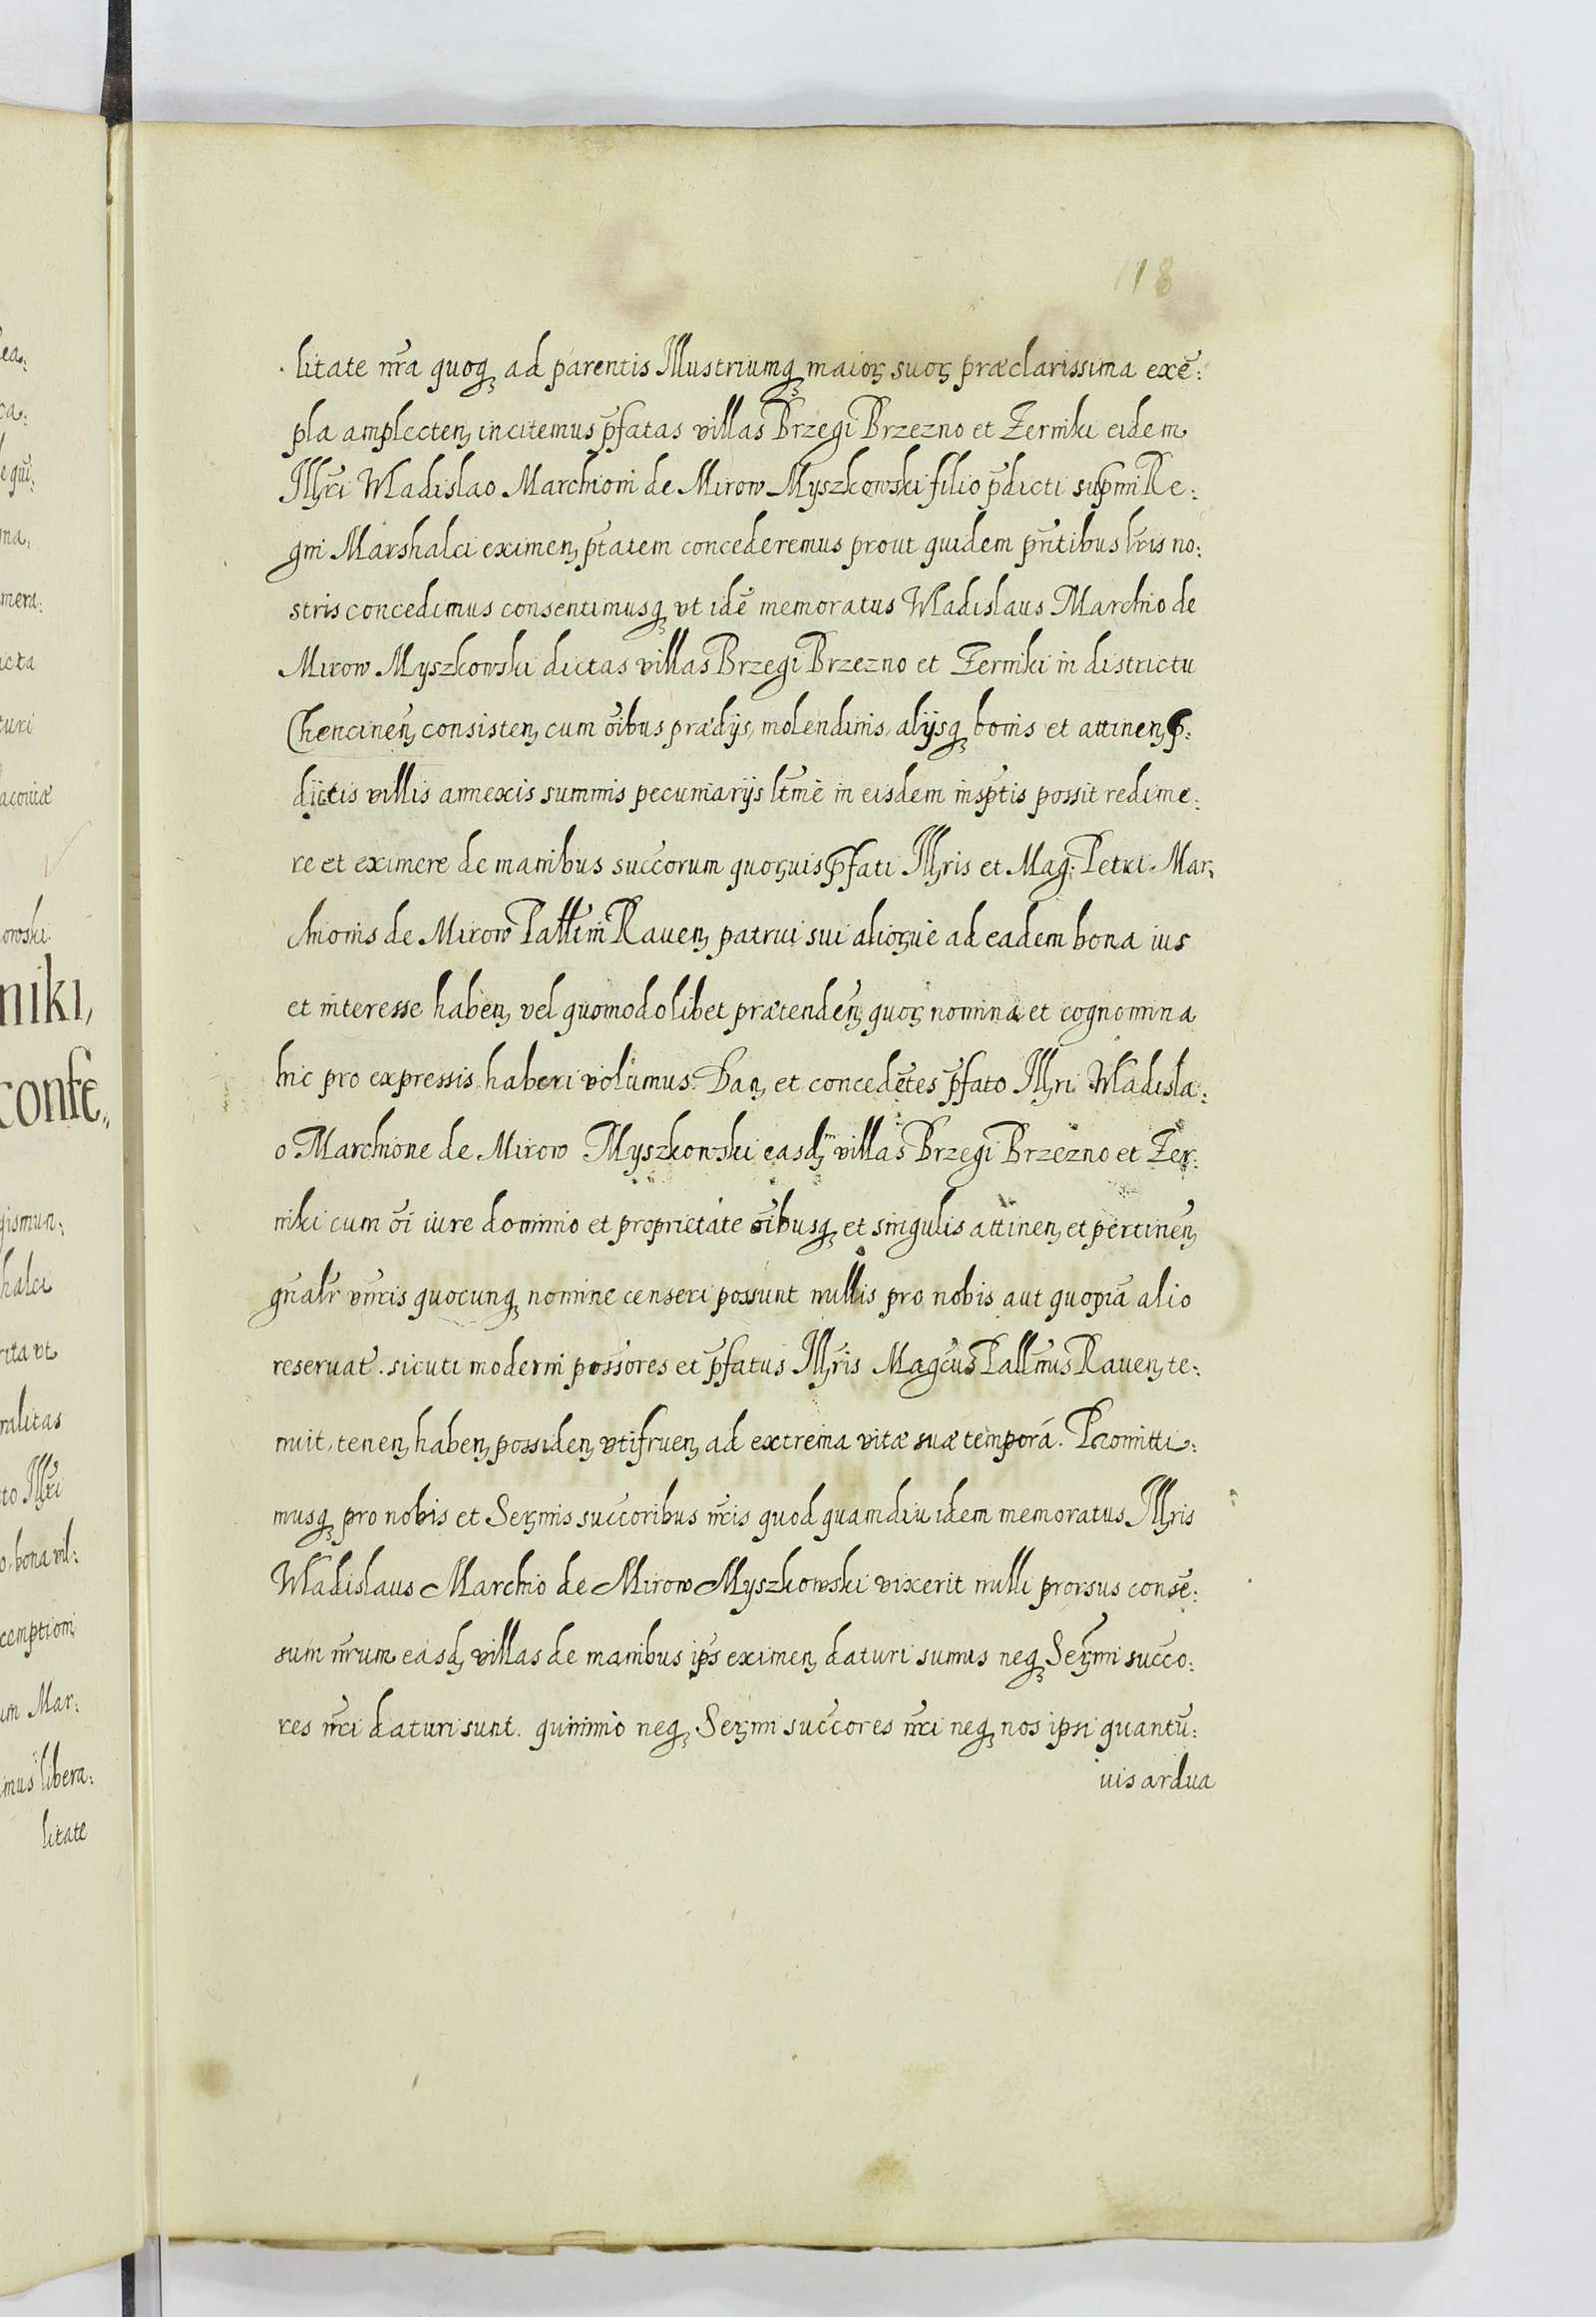 118
litate nr̃a quoq₃ ad parentis Illustriumq₃ maioꝝ suoꝝ præclarissima exẽ:
pla amplecten₃ incitemus p̃fatas villas Brzegi Brzezno et Zerniki eidem
Illr̃i Wladislao Marchioni de Mirow Myszkowski filio p̃dicti supmi Re:
gni Marshalci eximen₃ ptãtem concederemus prout quidem pñtibus lr̃is no:
stris concedimus consentimusq₃ vt idẽ memoratus Wladislaus Marchio de
Mirow Myszkowski dictas villas Brzegi Brzezno et Zerniki in districtu
Chencineñ₃ consisten₃ cum õibus prædijs, molendinis, alijsq₃ bonis et attinen₃ p̃:
dictis villis annexis summis pecuniarijs ltm̃e in eisdem insptis possit redime:
re et eximere de manibus succorum quoꝝuis p̃fati Illr̃is et Mag: Petri Mar:
chionis de Mirow Pallni Raven₃ patrui sui alioꝝue ad eadem bona ius
et interesse haben₃ vel quomodolibet prætendeñ₃ quoꝝ nomina et cognomina
hic pro expressis haberi volumus. Dan₃ et concedẽtes p̃fato Illr̃i Wladisla:
o Marchione de Mirow Myszkowski easd₃ villas Brzegi Brzezno et Zer:
niki cum õi iure dominio et proprietate õibusq₃ et singulis attinen₃ et pertineñ₃
gñalr̃ vñris quocunq₃ nomine censeri possunt nullis pro nobis aut quopiã alio
reseruat̃. sicuti moderni possores et p̃fatus Illr̃is Magcus Pallnus Raven₃ te:
nuit, tenen₃ haben₃ possiden₃ vtifruen₃ ad extrema vitæ suæ tempora. Promitti:
musq₃ pro nobis et Ser₃mis succoribus nr̃is quod quamdiu idem memoratus Illr̃is
Wladislaus Marchio de Mirow Myszkowski vixerit nulli prorsus consẽ:
sum nr̃um easd₃ villas de manibus ips̃ eximen₃ daturi sumus neq₃ Ser₃mi succo:
res nr̃i daturi sunt. quinimo neq₃ Ser₃mi succores nr̃i neq₃ nos ipsi quantũ:
uis ardua